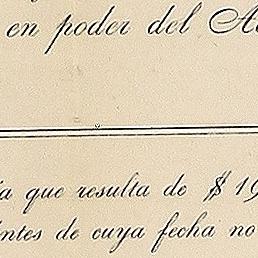 en poder del A
a que resulta de $ 19
ntes de cuya fecha no